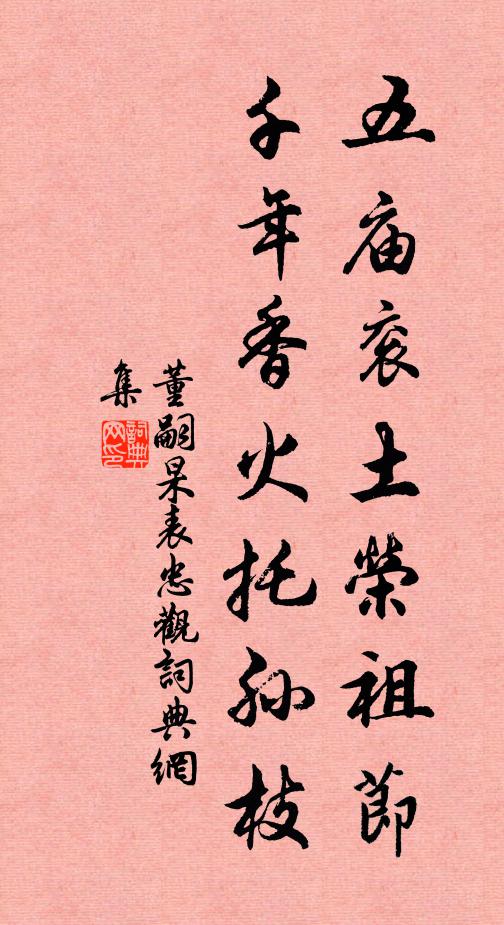 五庙衮土榮祖節
千年香火托孙枝
董嗣杲表忠觀詞典網
集
詞典
网印